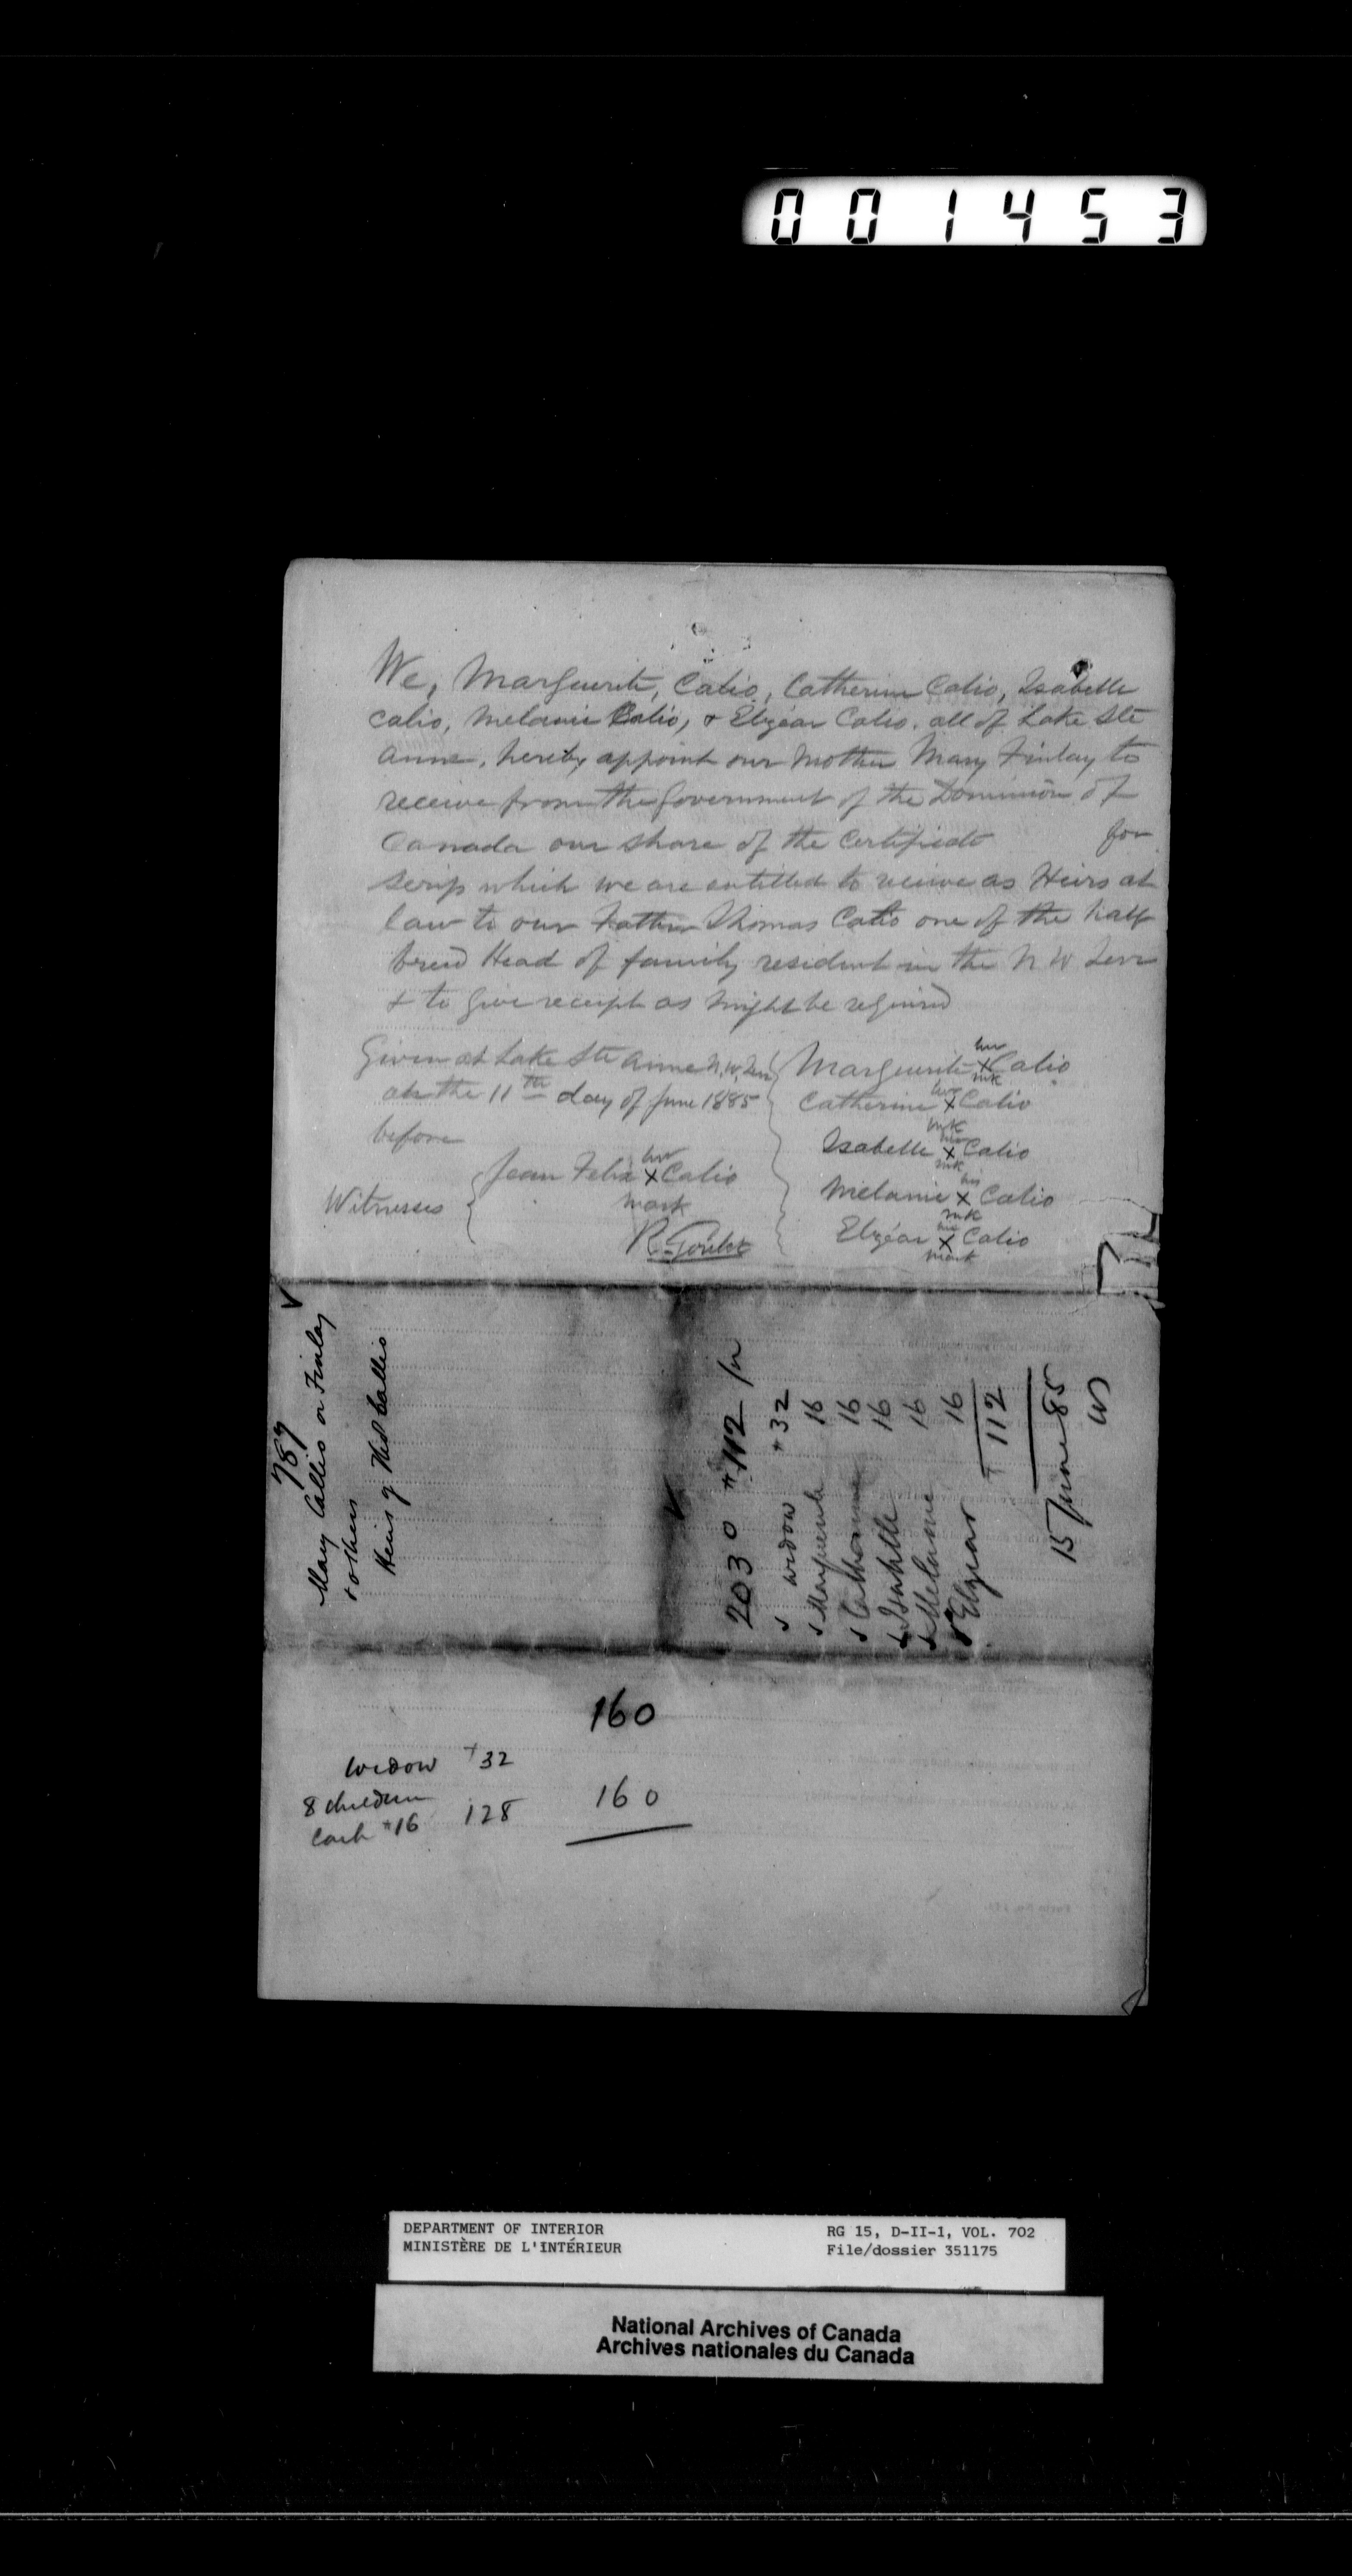 001453
We, Marguerite, Calio, Catherine Calio, Isabelle
Calio, Melanie Calio, & Elzéar Calio. all of Lake Ste
Anne, hereby appoint our Mother Mary Finlay to
receive from the Government of the Dominion of
Canada our share of the Certificate for
scrip which we are entitled to receive as Heirs at
law to our Father Thomas Calio one of the half
breed Head of family resident in the N W Terr
& to give receipt as might be required
Given at Lake Ste Anne N.W. Terr
on the 11th day of June 1885
before
Witnesses
Jean Felix his X Calio
mark
R. Goulet
Marguerite her X Calio
mk
Catherine her X Calio
mk
Isabelle her X Calio
mk
Melanie his X Calio
mk
Elzéar his X Calio
mark
787
Mary Callis or Finlay
& others
Heirs of Thos Callio
2030 $112
widow $32
Marguerite 16
Catherine 16
Isabelle 16
Melanie 16
Elzear 16
112
15 June 85
160
Widow $32
8 children
Each $16 128 160
DEPARTMENT OF INTERIOR
MINISTÈRE DE L'INTÉRIEUR
RG 15, D-II-1, VOL. 702
File/dossier 351175
National Archives of Canada
Archives nationales du Canada